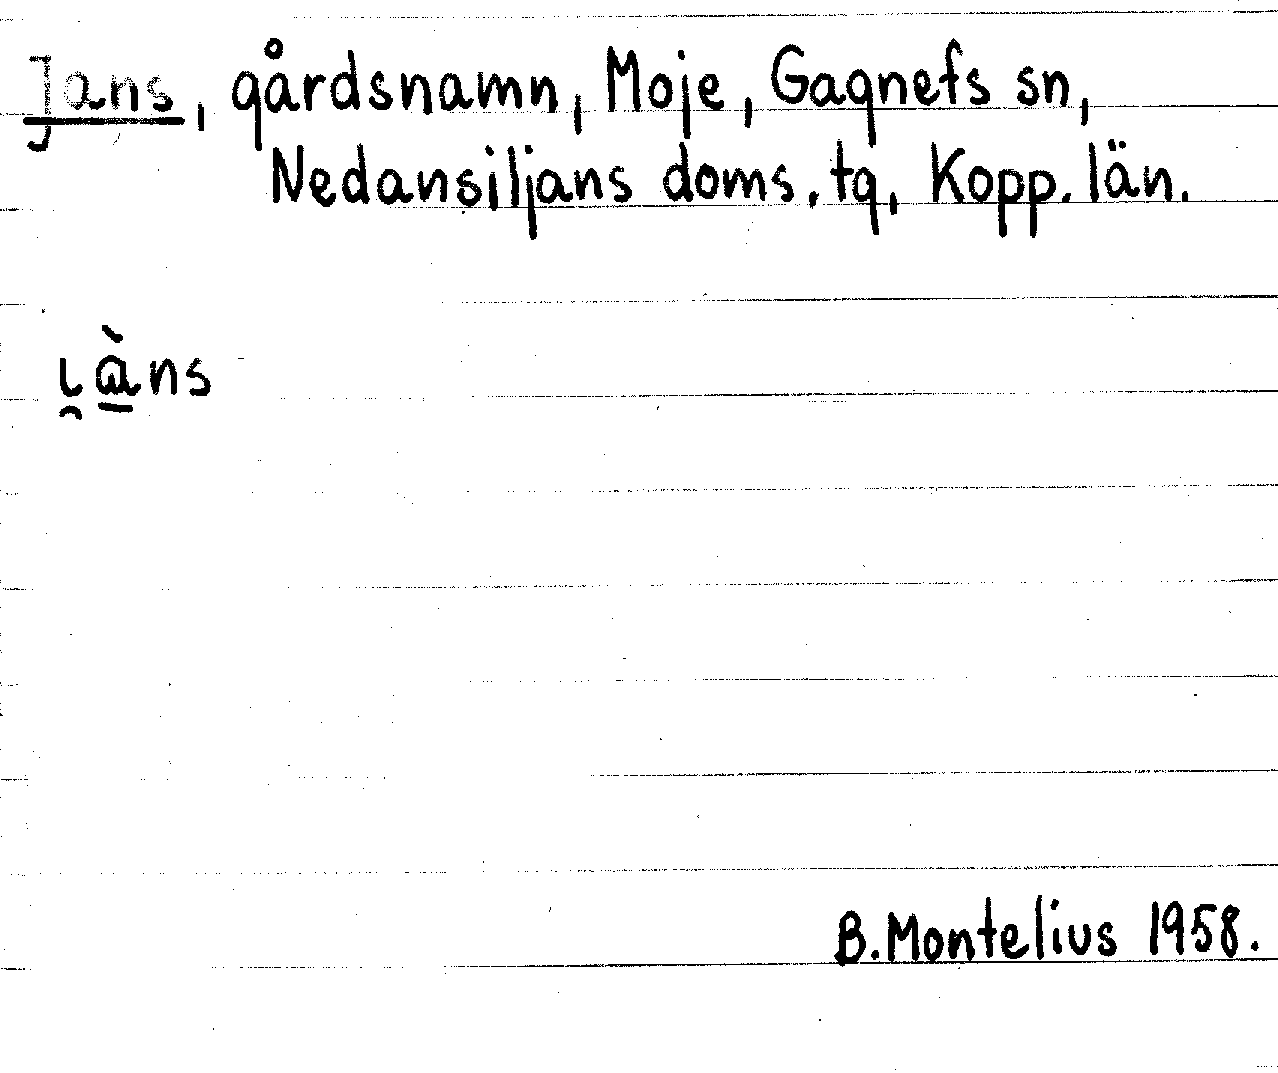 Jans, gårdsnamn, Moje, Gagnefs sn,
Nedansiljans doms. tg, Kopp. län.
ɩ̯à̱ns
B. Montelius 1958.